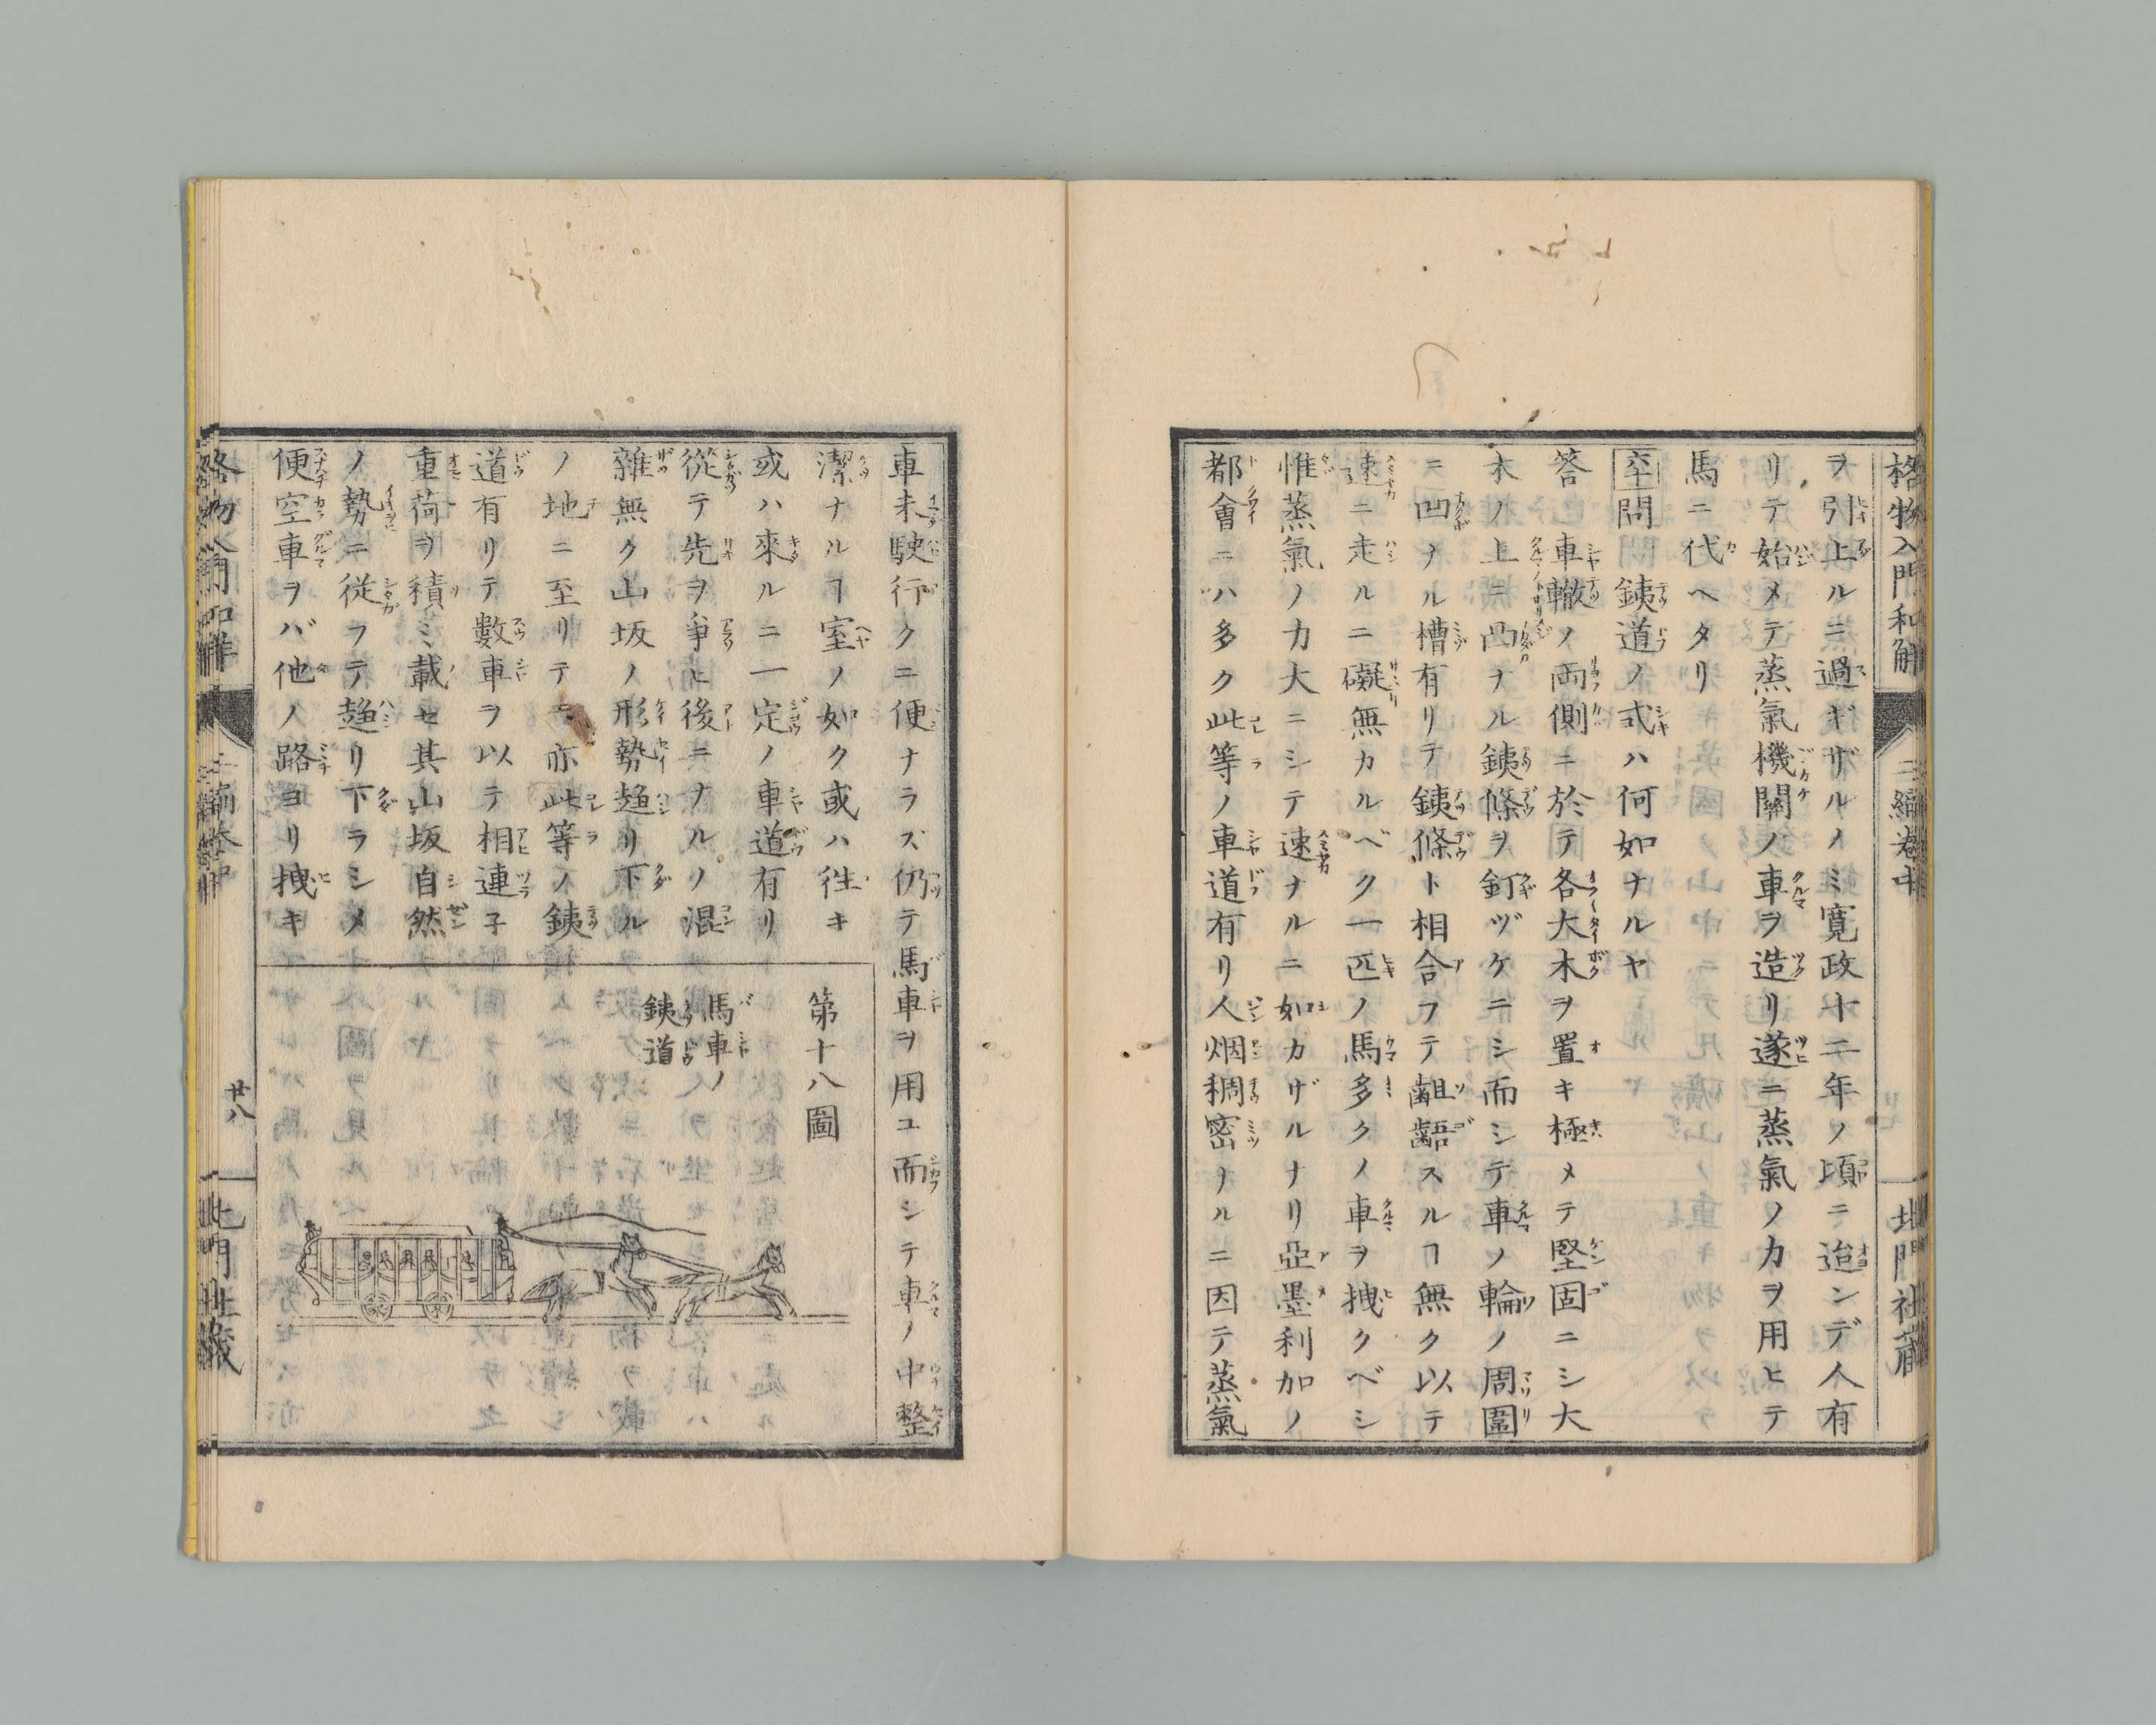 格物入門和解 三編卷中 北門社藏
ヲ引上ルニ過ギザルノミ寛政十二年ノ頃ニ迨ンデ人有
リテ始メテ蒸氣機關ノ車ヲ造リ遂ニ蒸氣ノ力ヲ用ヒテ
馬ニ代ヘタリ
問 銕道ノ式ハ何如ナルヤ
答 車轍ノ両側ニ於テ各大木ヲ置キ極メテ堅固ニシ大
木ノ上ニ凸ナル銕條ヲ釘ヅケニシ而シテ車ノ輪ノ周圍
ニ凹ナル槽有リテ銕條ト相合フテ齟齬スルヿ無ク以テ
速ニ走ルニ礙無カルベク一匹ノ馬多クノ車ヲ拽クベシ
惟蒸氣ノ力大ニシテ速ナルニ如カザルナリ亞墨利加ノ
都會ニハ多ク此等ノ車道有リ人烟稠密ナルニ因テ蒸氣
車未駛行クニ便ナラズ仍テ馬車ヲ用ユ而シテ車ノ中整
潔ナルヿ室ノ如ク或ハ徃キ
或ハ來ルニ一定ノ車道有リ
從テ先ヲ爭ヒ後ニナルノ混
雜無ク山坂ノ形勢趨リ下ル
ノ地ニ至リテモ亦此等ノ銕
道有リテ數車ヲ以テ相連子
重荷ヲ積ミ載セ其山坂自然
ノ勢ニ従フテ趨リ下ラシメ
便空車ヲバ他ノ路ヨリ拽キ
第十八圖
馬車ノ
銕道
格物入門和解 三編卷中 廿八 北門社藏